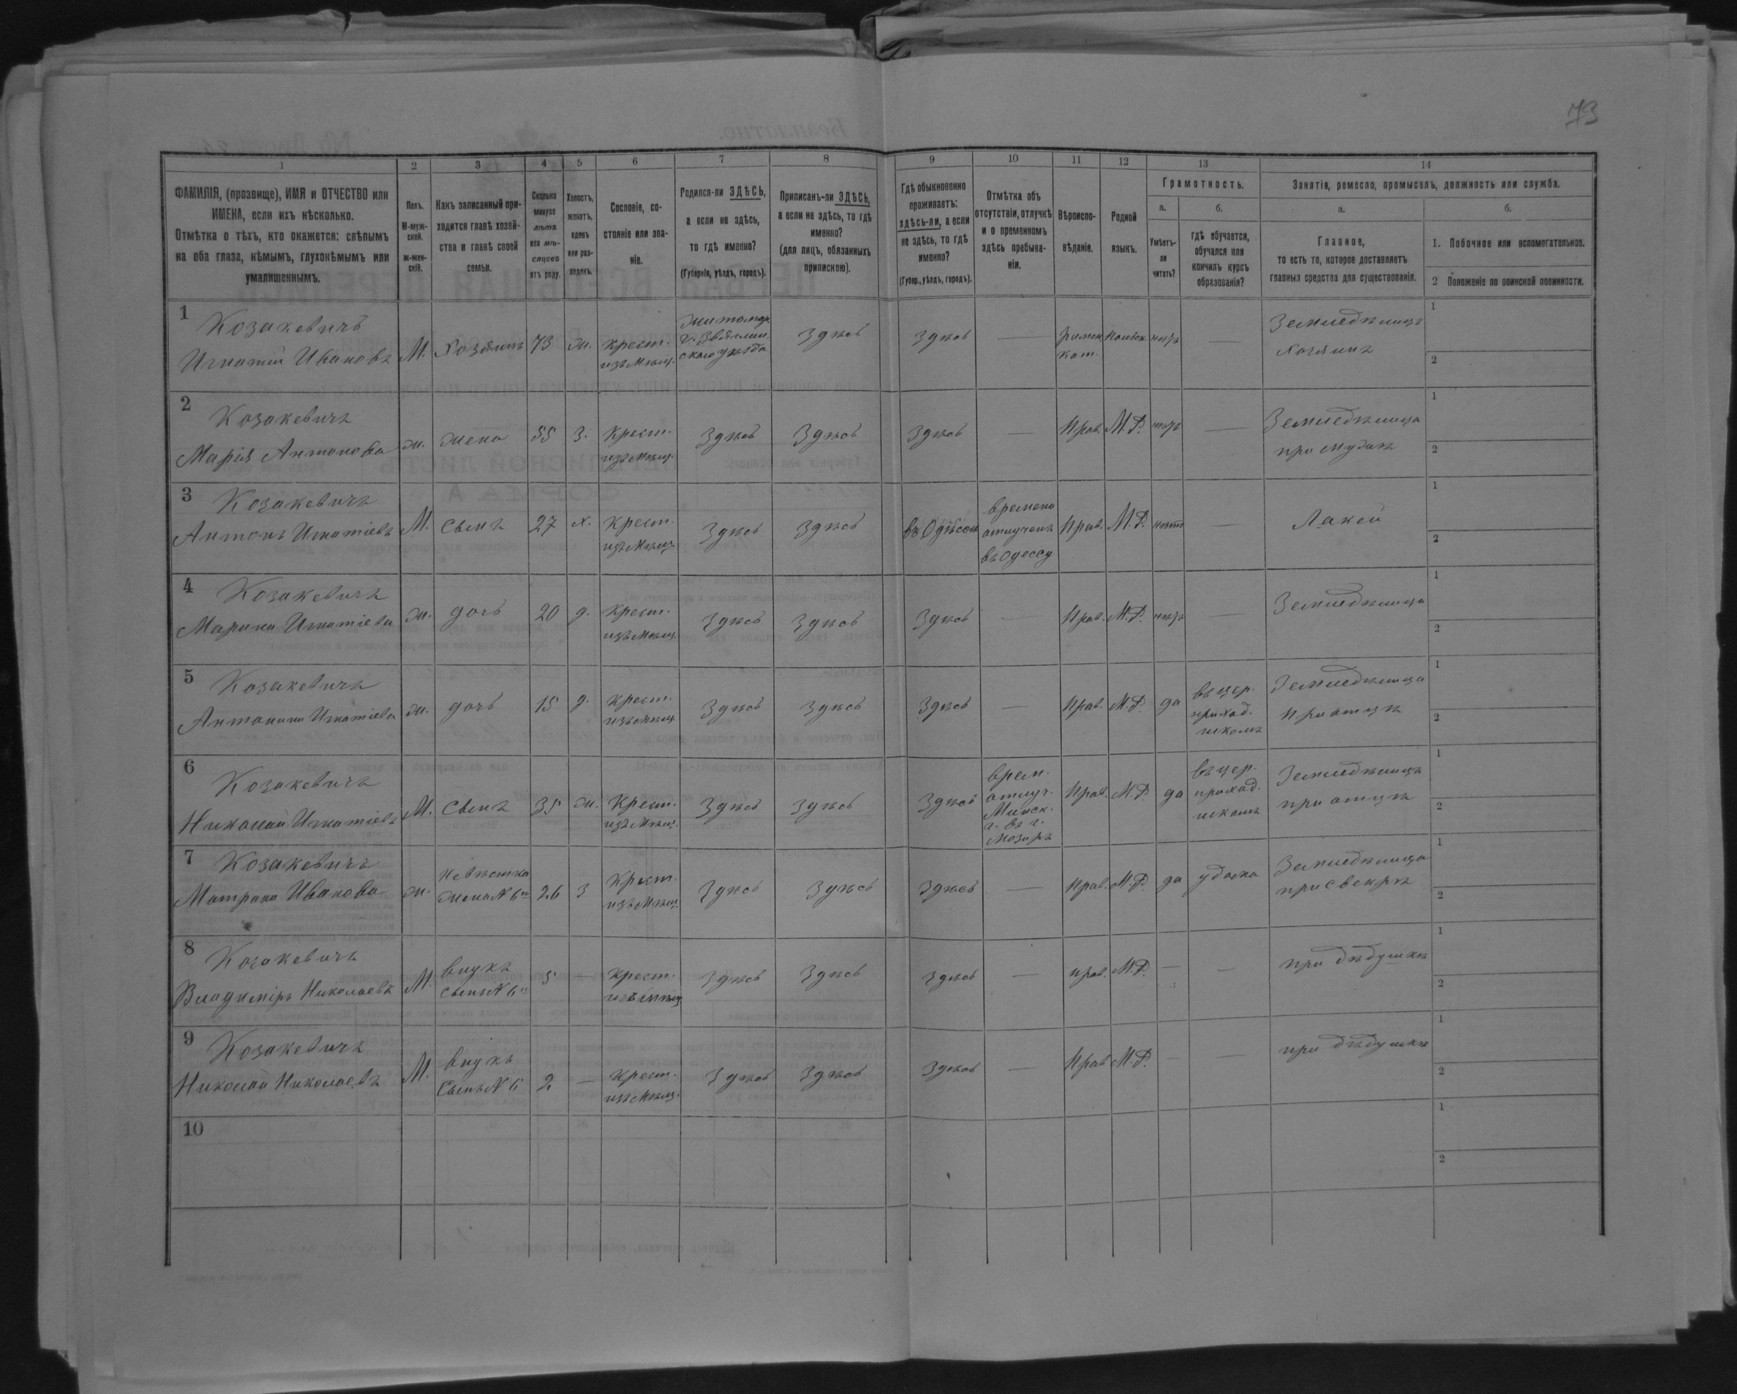 73
1 2 3 4 5 6 7 8 9 10 11 12 13 14
ФАМИЛІЯ, (прозвище), ИМЯ и ОТЧЕСТВО или
ИМЕНА, если ихъ нѣсколько.
Отмѣтка о тѣхъ, кто окажется: слѣпымъ
на оба глаза, нѣмымъ, глухонѣмымъ или
умалишеннымъ.
Полъ.
М-муж-
ской.
ж-жен-
скій.
Какъ записанный при-
ходится главѣ хозяй-
ства и главѣ своей
семьи.
Сколько
минуло
лѣтъ
или мѣ-
сяцевъ
отъ роду.
Холостъ,
женатъ,
вдовъ
или раз-
веденъ.
Сословіе, со-
стояніе или зва-
ніе.
Родился-ли ЗДѢСЬ,
а если не здѣсь,
то гдѣ именно?
(Губернія, уѣздъ, городъ).
Приписанъ-ли ЗДѢСЬ,
а если не здѣсь, то гдѣ
именно?
(для лицъ, обязанныхъ
припискою).
Гдѣ обыкновенно
проживаетъ:
здѣсь-ли, а если
не здѣсь, то гдѣ
именно?
(Губер., уѣздъ, городъ).
Отмѣтка объ
отсутствіи, отлучкѣ
и о временномъ
здѣсь пребыва-
ніи.
Вѣроиспо-
вѣданіе.
Родной
языкъ.
Грамотность.
а.
Умѣетъ-
ли
читать?
б.
гдѣ обучается,
обучался или
кончилъ курсъ
образованія?
Занятія, ремесло, промыселъ, должность или служба.
а.
Главное,
то есть то, которое доставляетъ
главныя средства для существованія.
б.
1. Побочное или вспомогательное.
2 Положеніе по воинской повинности.
1
Козакевичъ
Игнатій Ивановъ
М. Хозяинъ 73 ж. крест.
изъ мѣщ.
Житомер
ского уѣзда
Здѣсь Здѣсь — римск.
кат.
нѣтъ —
Земледѣлецъ
хозяинъ
1
2
2
Козакевичъ
Марія Антонова
ж. жена 55 З. крест.
изъ мѣщ.
Здѣсь Здѣсь Здѣсь — Прав. М.Р. нѣтъ —
Земледѣлица
при мужѣ
1
2
3
Козакевичъ
Антонъ Игнатіевъ
М. Сынъ 27 х. крест.
изъ мѣщ.
Здѣсь Здѣсь въ Одессѣ
времено
отлученъ
въ Одессу
Прав. М.Р. нѣтъ —
Лакей
1
2
4
Козакевичъ
Марина Игнатіева
ж. дочь 20 д. крест.
изъ мѣщ.
Здѣсь Здѣсь Здѣсь — Прав. М.Р. нѣтъ —
Земледѣлица
1
2
5
Козакевичъ
Антонина Игнатіева
ж. дочь 15 д. крест.
изъ мѣщ.
Здѣсь Здѣсь Здѣсь — Прав. М.Р. да
въ цер.
приход.
школѣ
Земледѣлица
при отцѣ
1
2
6
Козакевичъ
Николай Игнатіевъ
М. Сынъ 35 ж. Крест.
изъ мѣщ.
Здѣсь Здѣсь Здѣсь
врем.
отлуч.
Минск.
г. въ г.
Мозырь
Прав. М.Р. да
въ цер.
приход.
школѣ
Земледѣлецъ
при отцѣ
1
2
7
Козакевичъ
Матрона Иванова
ж. Невѣстка
жена №6го 26 З Крест.
изъ мѣщ.
Здѣсь Здѣсь Здѣсь — Прав. М.Р. да
Земледѣлица
при свекрѣ
1
2
8
Козакевичъ
Владиміръ Николаевъ
М. внукъ
Сынъ №6го 5 — крест.
изъ мѣщ
Здѣсь Здѣсь Здѣсь — прав. М.Р. — —
при дѣдушкѣ
1
2
9
Козакевичъ
Николай Николаевъ
М. внукъ
Сынъ №6 2 — крест.
изъ мѣщ.
Здѣсь Здѣсь Здѣсь — Прав М.Р. — —
при дѣдушкѣ
1
2
10
1
2